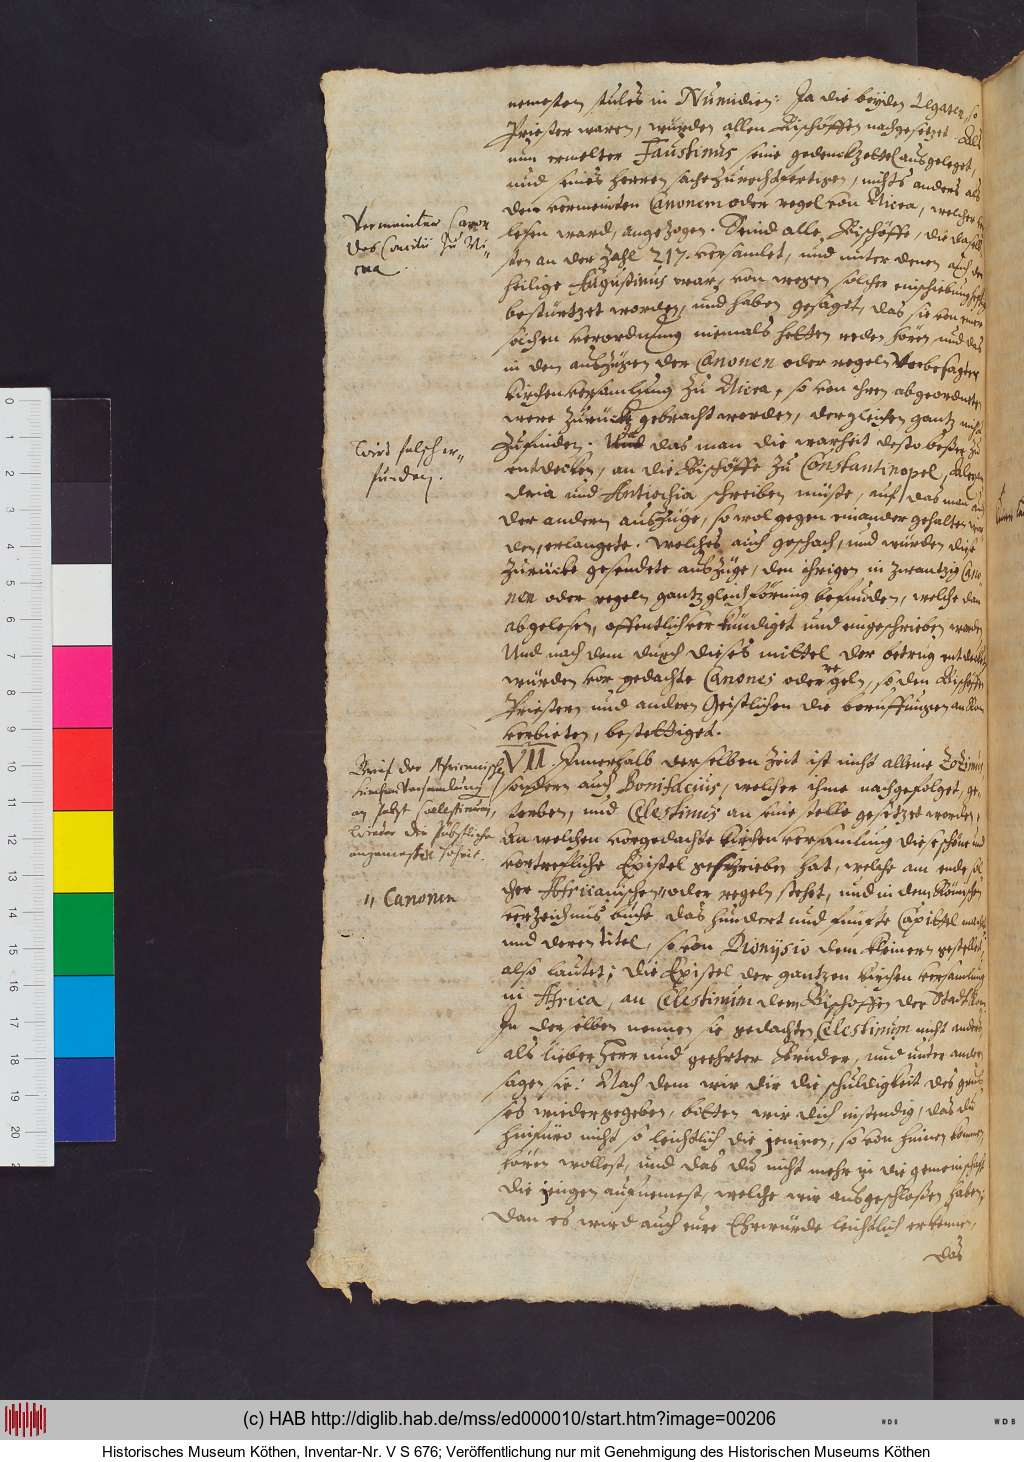 nemesten stules in Numidien: Ja die beyden Legaten, so
Priester waren, wurden allen Bischöffen nachgesetzet. Als
nun ermelter Faustinus seine gedenckzettel ausgeleget,
und seines herren sache zurechtfertigen, nichts anders als
den vermeinten Canonem oder regel von Nicea, welcher
lesen ward, angezogen. Seind alle Bischöffe, die daselb
sten an der Zahl 217. versamlet, und unter denen auch der
heilige Augustinus war, von wegen solcher einschiebung
bestürtzet worden, und haben gesaget, das sie von einer
solchen verordnung niemals hetten reden hören und das
in den auszügen der Canonen oder regeln Vorbesagter
Kirchenversamlung zu Nicea, so von ihren abgeordneten
were zurück gebracht worden, dergleichen gantz nicht
zufinden. Und das man die warheit desto besser zu
entdecken, an die Bischöffe zu Constantinopel, Alexan
dria und Antiochia schreiben müste, auf das man auch
der andern auszüge, so wol gegen einander gehalten wor
den, erlangete. Welches auch geschach, und wurden diese
zurücke gesendete auszüge, den ihrigen in zwantzig Cano
nen oder regeln gantz gleichförmig befunden, welche dan
abgelesen, offentlich verkündiget und eingeschrieben worden
Und nach dem durch dieses mittel der betrug entdecket,
wurden vor gedachte Canones oder regeln, so den Bischoffen
Priestern und andern Geistlichen die beruffungen an Rom
verbieten, bestettiget.
VII. Innerhalb derselben Zeit ist nicht alleine Zozimus
sondern auch Bonifacius, welcher ihme nachgefolget, ge-
storben, und Celestinus an seine stelle gesetzet worden,
An welchen vorgedachte Kirchenversamlung die schöne und
vortrefliche Epistel geschrieben hat, welche am ende
der Africanischen " oder regeln stehet, und in dem Römischen
verzeichnus buche, das hundert und funfte Capittel machet
und deren titel, so von Dionysio dem kleinern gestellet,
also lautet; die Epistel der gantzen kirchen versamlung
in Africa, an Celestinum dem Bischoffen der Stadt Rom
In derselben nennen sie gedachten Celestinum nicht anders,
als lieber Herr und geehrter Bruder, und unter andern
sagen sie: Nach dem wir dir die schuldigkeit des grus
ses wieder gegeben, bitten wir dich instendig, das du
hinfüro nicht so leichtlich die jenigen, so von hinnen kommen
hören wollest, und das du nicht mehr in die gemeinschaft
die jenigen aufnemest, welche wir ausgeschlossen haben;
Dan es wird auch eure Ehrwürde leichtlich erkennen,
das
Vermeinter Canon
des Concilii zu Ni-
cæa.
Wird falsch er-
funden.
Brief der Africanischen
Kirchen Versamlung
an Pabst Coelestinum,
wieder die Päbstliche
angemaste
" Canonen
(c) HAB http://diglib.hab.de/mss/ed000010/start.htm?image=00206
WDB
WDB
Historisches Museum Köthen, Inventar-Nr. V S 676; Veröffentlichung nur mit Genehmigung des Historischen Museums Köthen
0
1
2
3
4
5
6
7
8
9
10
11
12
13
14
15
16
17
18
19
20